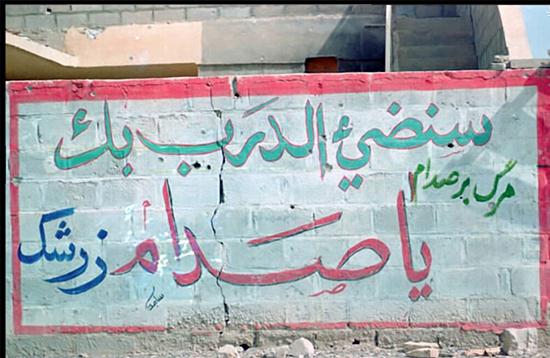 سنضيء الدرب بك
مرگ بر صدام
يا صدام
زرشک